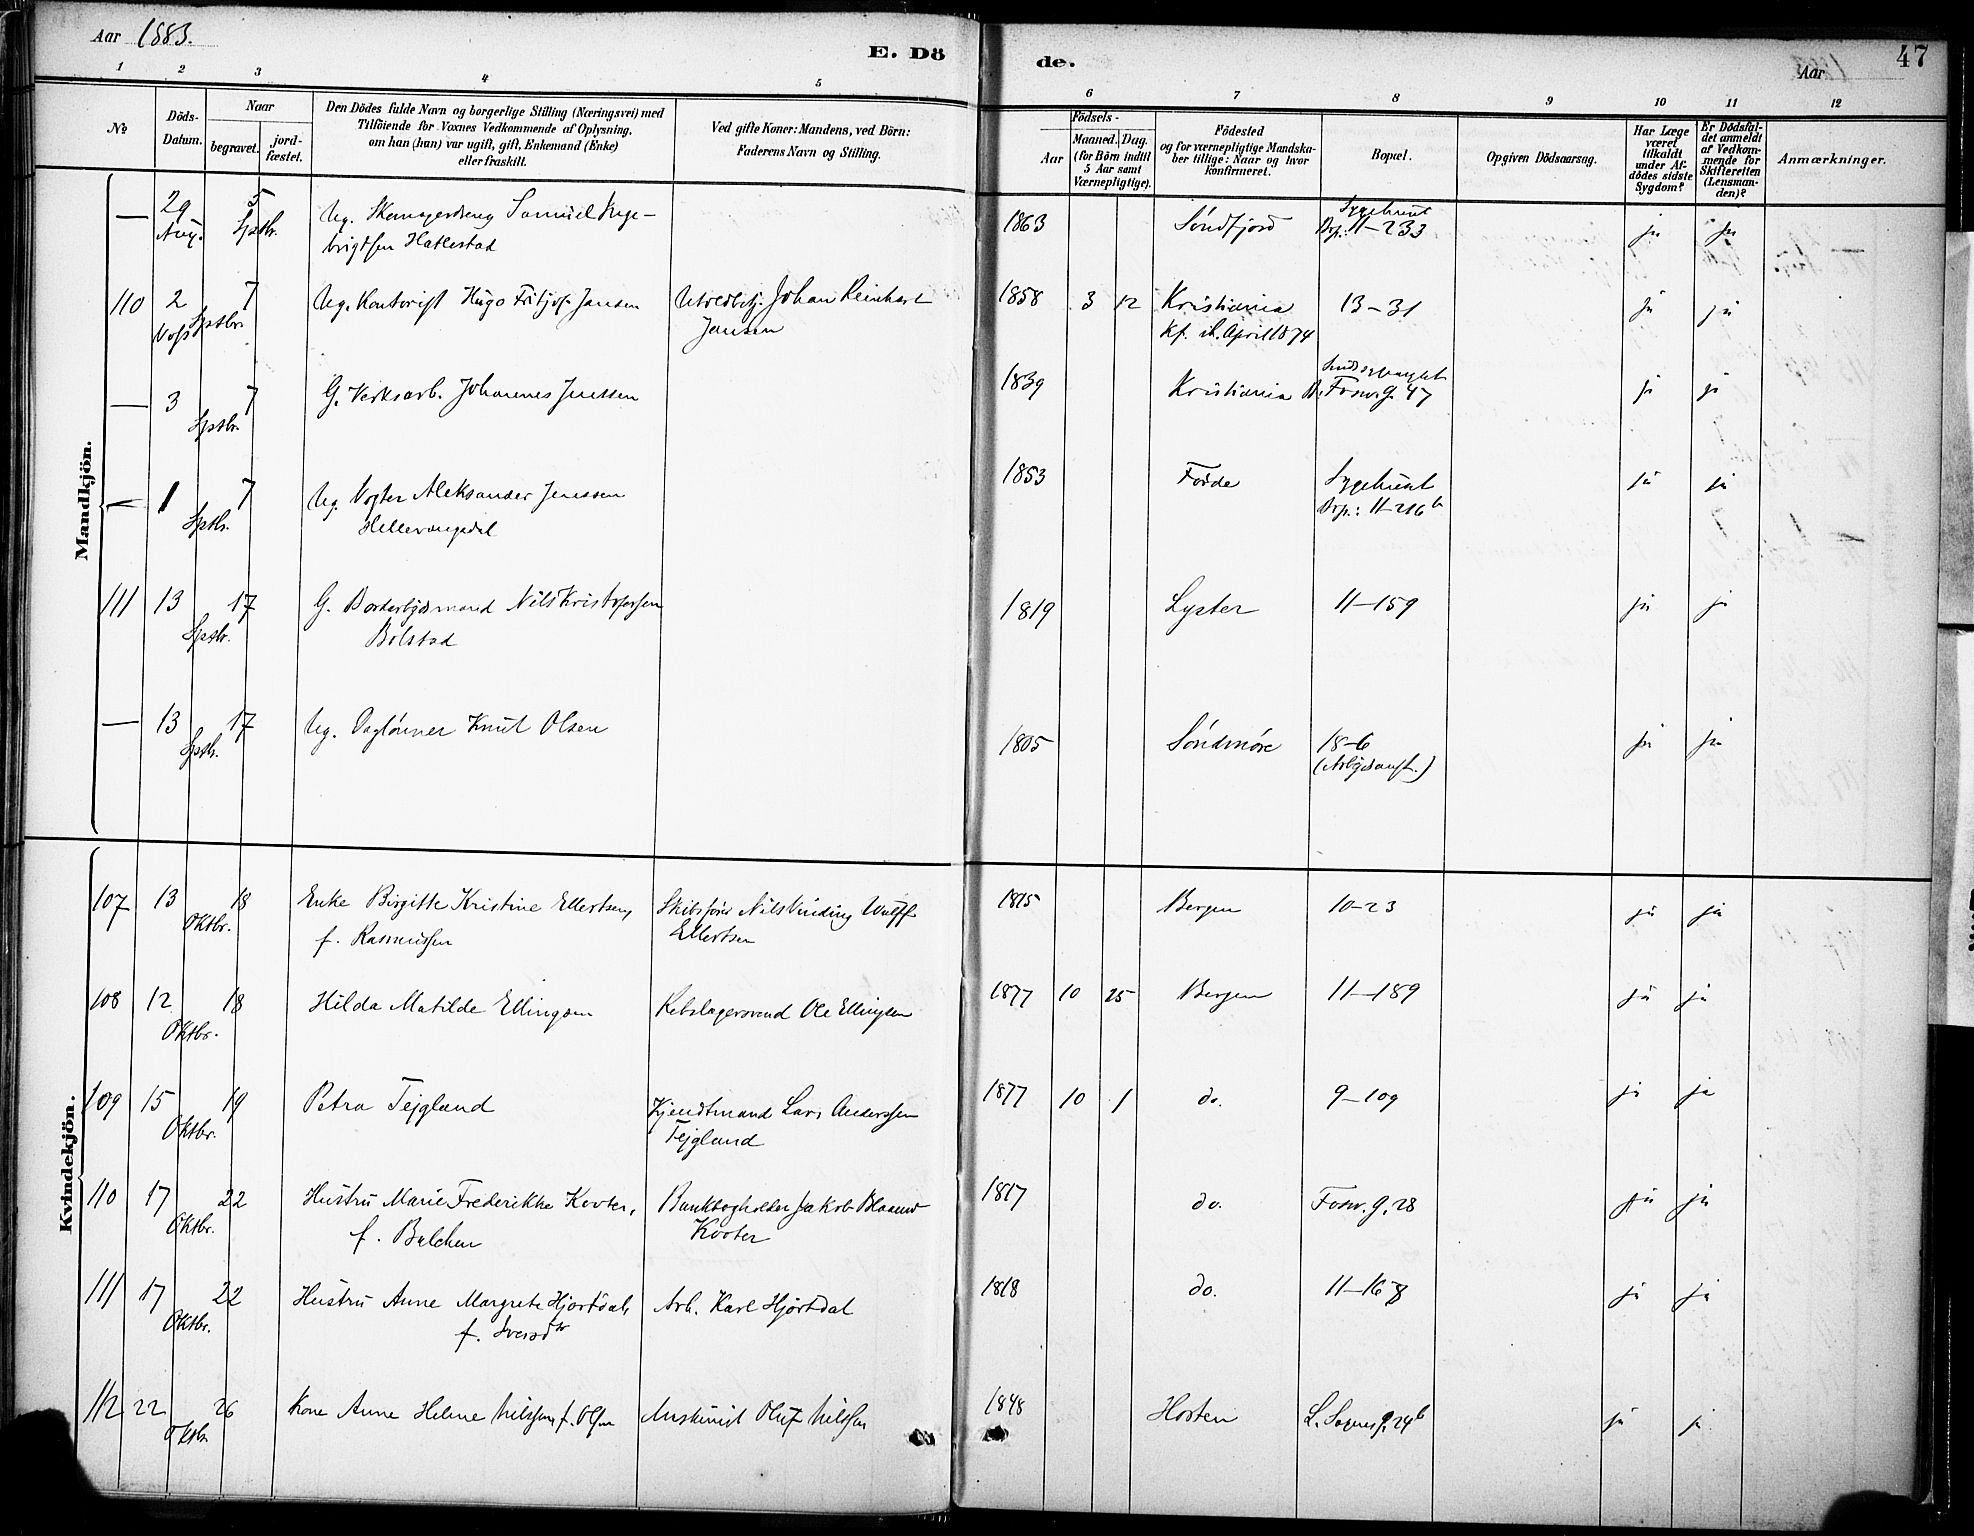 Aar 1883.
E. Dö
de.
Aar
47
1 2 3 4 5 6 7 8 9 10 11 12
No
Döds-
Datum.
Naar
begravet.
jord-
fæstet.
Den Dödes fulde Navn og borgerlige Stilling (Næringsvei) med
Tilföiende for Voxnes Vedkommende af Oplysning,
om han (hun) var ugift, gift, Enkemand (Enke)
eller fraskilt.
Ved gifte Koner: Mandens, ved Börn:
Faderens Navn og Stilling.
Födsels-
Aar
Maaned. Dag.
(for Börn indtil
5 Aar samt
Værnepligtige).
Födested
og for værnepligtige Mandska-
ber tillige: Naar og hvor
konfirmeret.
Bopæl.
Opgiven Dödsaarsag.
Har Læge
været
tilkaldt
under Af-
dödes sidste
Sygdom?
Er Dödsfal-
det anmeldt
af Vedkom-
mende for
Skifteretten
(Lensman-
den)?
Anmærkninger.
Mandkjön.
— 29 Aug. 5 Sptbr. Ug. Samuel Inge-
brigtsen Hatlestad
1863 Søndfjord Sygehuset
11-233 ja ja
110 2 Voss 7 Sptbr. Ug. Kontorist Hugo Fritjof Jansen
Johan Reinhart
Jansen
1858 3 12 Kristiania
Kf. April 1874
13-31 ja ja
— 3 7 Sptbr. G. Verksarb. Johannes Jenssen
1839 Kristiania Fosw.g. 47 ja ja
— 1 7 Sptbr. Ug. Vogter Aleksander Jenssen
1853 Førde Sygehuset
11-216b ja ja
111 13 17 Sptbr. G. Nils Kristofersen
Bolstad
1819 Lyster 11-159 ja ja
— 13 17 Sptbr. Ug. Daglønner Knut Olsen
1805 Søndmøre 18-6
(Arbeidsanst.) ja ja
Kvindekjön.
107 13 18 Oktbr. Enke Birgitte Kristine Ellertsen,
f. Rasmussen
Skibsfører Nils Vinding Wulff
Ellertsen
1815 Bergen 10-23 ja ja
108 12 18 Oktbr. Hilda Matilde Ellingsen
Rebslagersvend Ole Ellingsen
1877 10 25 Bergen 11-189 ja ja
109 15 19 Oktbr. Petra Tejgland
Lars Anderssen
Tejgland
1877 10 1 do. 9-109 ja ja
110 17 22 Oktbr. Hustru Marie Frederikke Kooter,
f. Balchen
Bankbogholder Jakob Blaauw
Kooter
1817 do. Fosw.g. 28 ja ja
111 17 22 Oktbr. Hustru Anne Margrete Hjortdal,
f. Iversdtr
Arb. Karl Hjortdal
1818 do. 11-168 ja ja
112 22 26 Oktbr. Kone Anne Helene Nilssen, f. Olsen
Oluf Nilssen
1848 Horten 24b ja ja